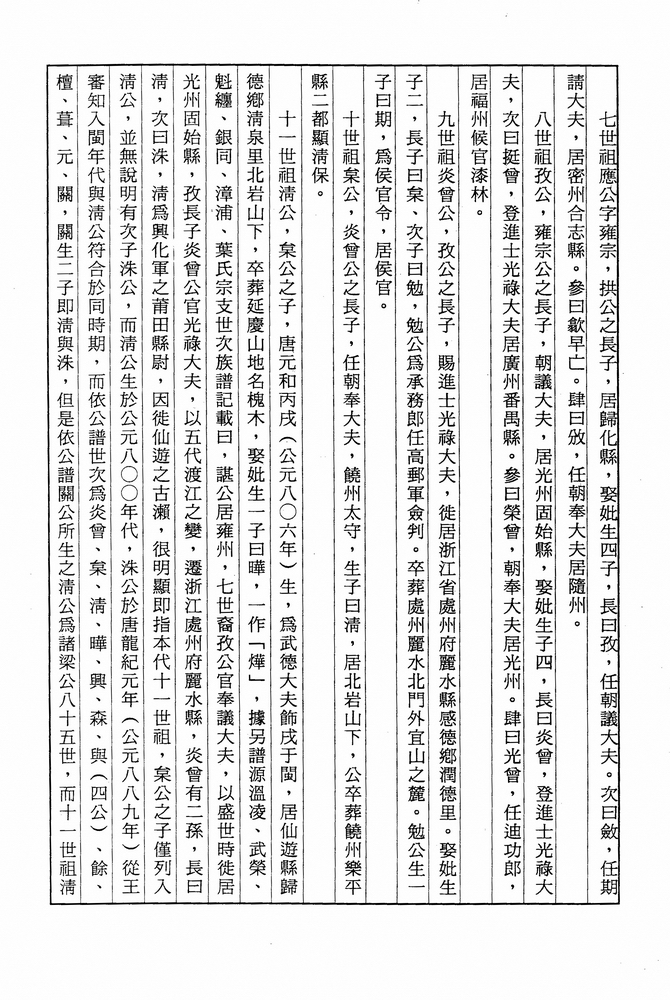 七世祖應公字雍宗，拱公之長子，居歸化縣，娶妣生四子，長曰孜，任朝議大夫。次曰斂，任期
請大夫，居密州合志縣。參曰歙早亡。肆曰攽，任朝奉大夫居隨州。
八世祖孜公，雍宗公之長子，朝議大夫，居光州固始縣，娶妣生子四，長曰炎曾，登進士光祿大
夫，次曰挺曾，登進士光祿大夫居廣州番禺縣。參曰榮曾，朝奉大夫居光州。肆曰光曾，任迪功郎，
居福州候官漆林。
九世祖炎曾公，孜公之長子，賜進士光祿大夫，徙居浙江省處州府麗水縣感德鄉潤德里。娶妣生
子二，長子曰枲、次子曰勉，勉公爲承務郎任高郵軍僉判。卒葬處州麗水北門外宜山之麓。勉公生一
子曰期，爲侯官令，居侯官。
十世祖枲公，炎曾公之長子，任朝奉大夫，饒州太守，生子曰淸，居北岩山下，公卒葬饒州樂平
縣二都顯淸保。
十一世祖淸公，枲公之子，唐元和丙戌（公元八〇六年）生，爲武德大夫飾戌于閩，居仙遊縣歸
德鄉淸泉里北岩山下，卒葬延慶山地名槐木，娶妣生一子曰曄，一作「燁」，據另譜源溫凌、武榮、
魁纏、銀同、漳浦、葉氏宗支世次族譜記載曰，諶公居雍州，七世裔孜公官奉議大夫，以盛世時徙居
光州固始縣，孜長子炎曾公官光祿大夫，以五代渡江之變，遷浙江處州府麗水縣，炎曾有二孫，長曰
淸，次曰洙，淸爲興化軍之莆田縣尉，因徙仙遊之古瀨，很明顯即指本代十一世祖，枲公之子僅列入
淸公，並無說明有次子洙公，而淸公生於公元八〇〇年代，洙公於唐龍紀元年（公元八八九年）從王
審知入閩年代與淸公符合於同時期，而依公譜世次爲炎曾、枲、淸、曄、興、森、與（四公）、餘、
檀、葺、元、關，關生二子即淸與洙，但是依公譜關公所生之淸公爲諸梁公八十五世，而十一世祖淸